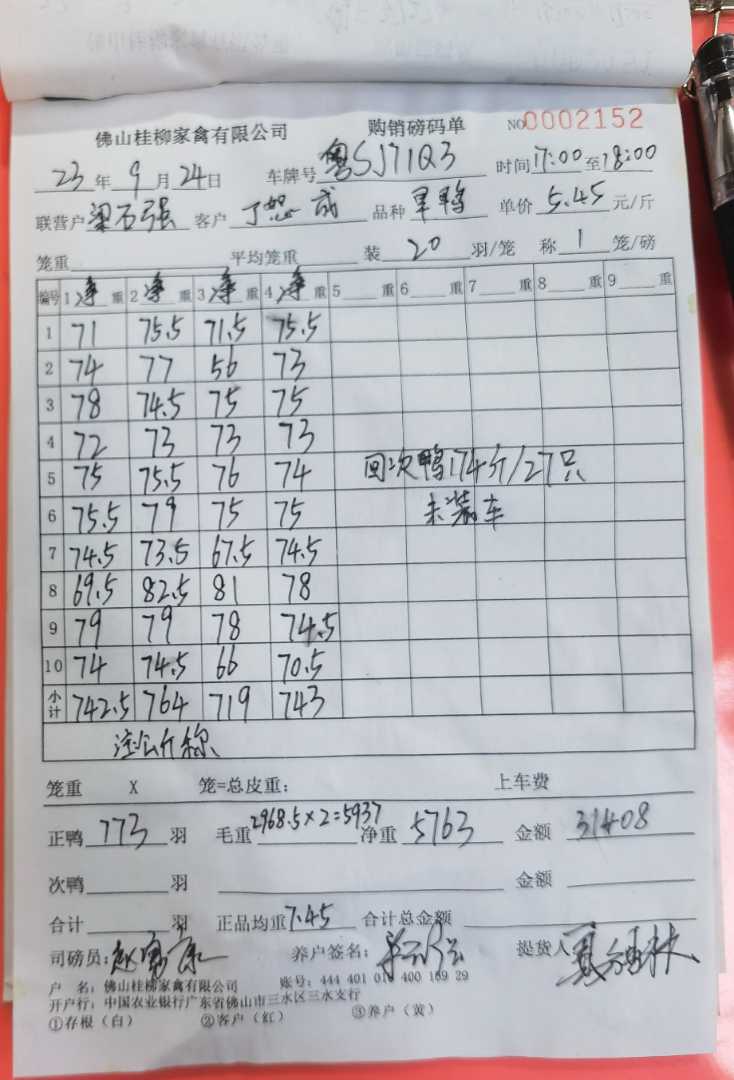 佛山桂柳家禽有限公司 购销磅码单 NO0002152
23年9月24日 车牌号粤SJ71Q3 时间17:00至18:00
联营户梁石强 客户 品种旱鸭 单价5.45元/斤
笼重 平均笼重 装20羽/笼 称1笼/磅
编号 1净重 2净重 3净重 4净重 5重 6重 7重 8重 9重
1 71 75.5 71.5 75.5
2 74 77 56 73
3 78 74.5 75 75
4 72 73 73 73
5 75 75.5 76 74 回次鸭174斤/27只
6 75.5 79 75 75 未装车
7 74.5 73.5 67.5 74.5
8 69.5 82.5 81 78
9 79 79 78 74.5
10 74 74.5 66 70.5
小计 742.5 764 719 743
注:公斤称
笼重 X 笼=总皮重: 上车费
正鸭773羽 毛重2968.5×2=5937 净重5763 金额31408
次鸭 羽 金额
合计 羽 正品均重7.45 合计总金额
司磅员: 养户签名: 提货人
户 名:佛山桂柳家禽有限公司 账号:444 401 010 400 169 29
开户行:中国农业银行广东省佛山市三水区三水支行
①存根(白) ②客户(红) ③养户(黄)